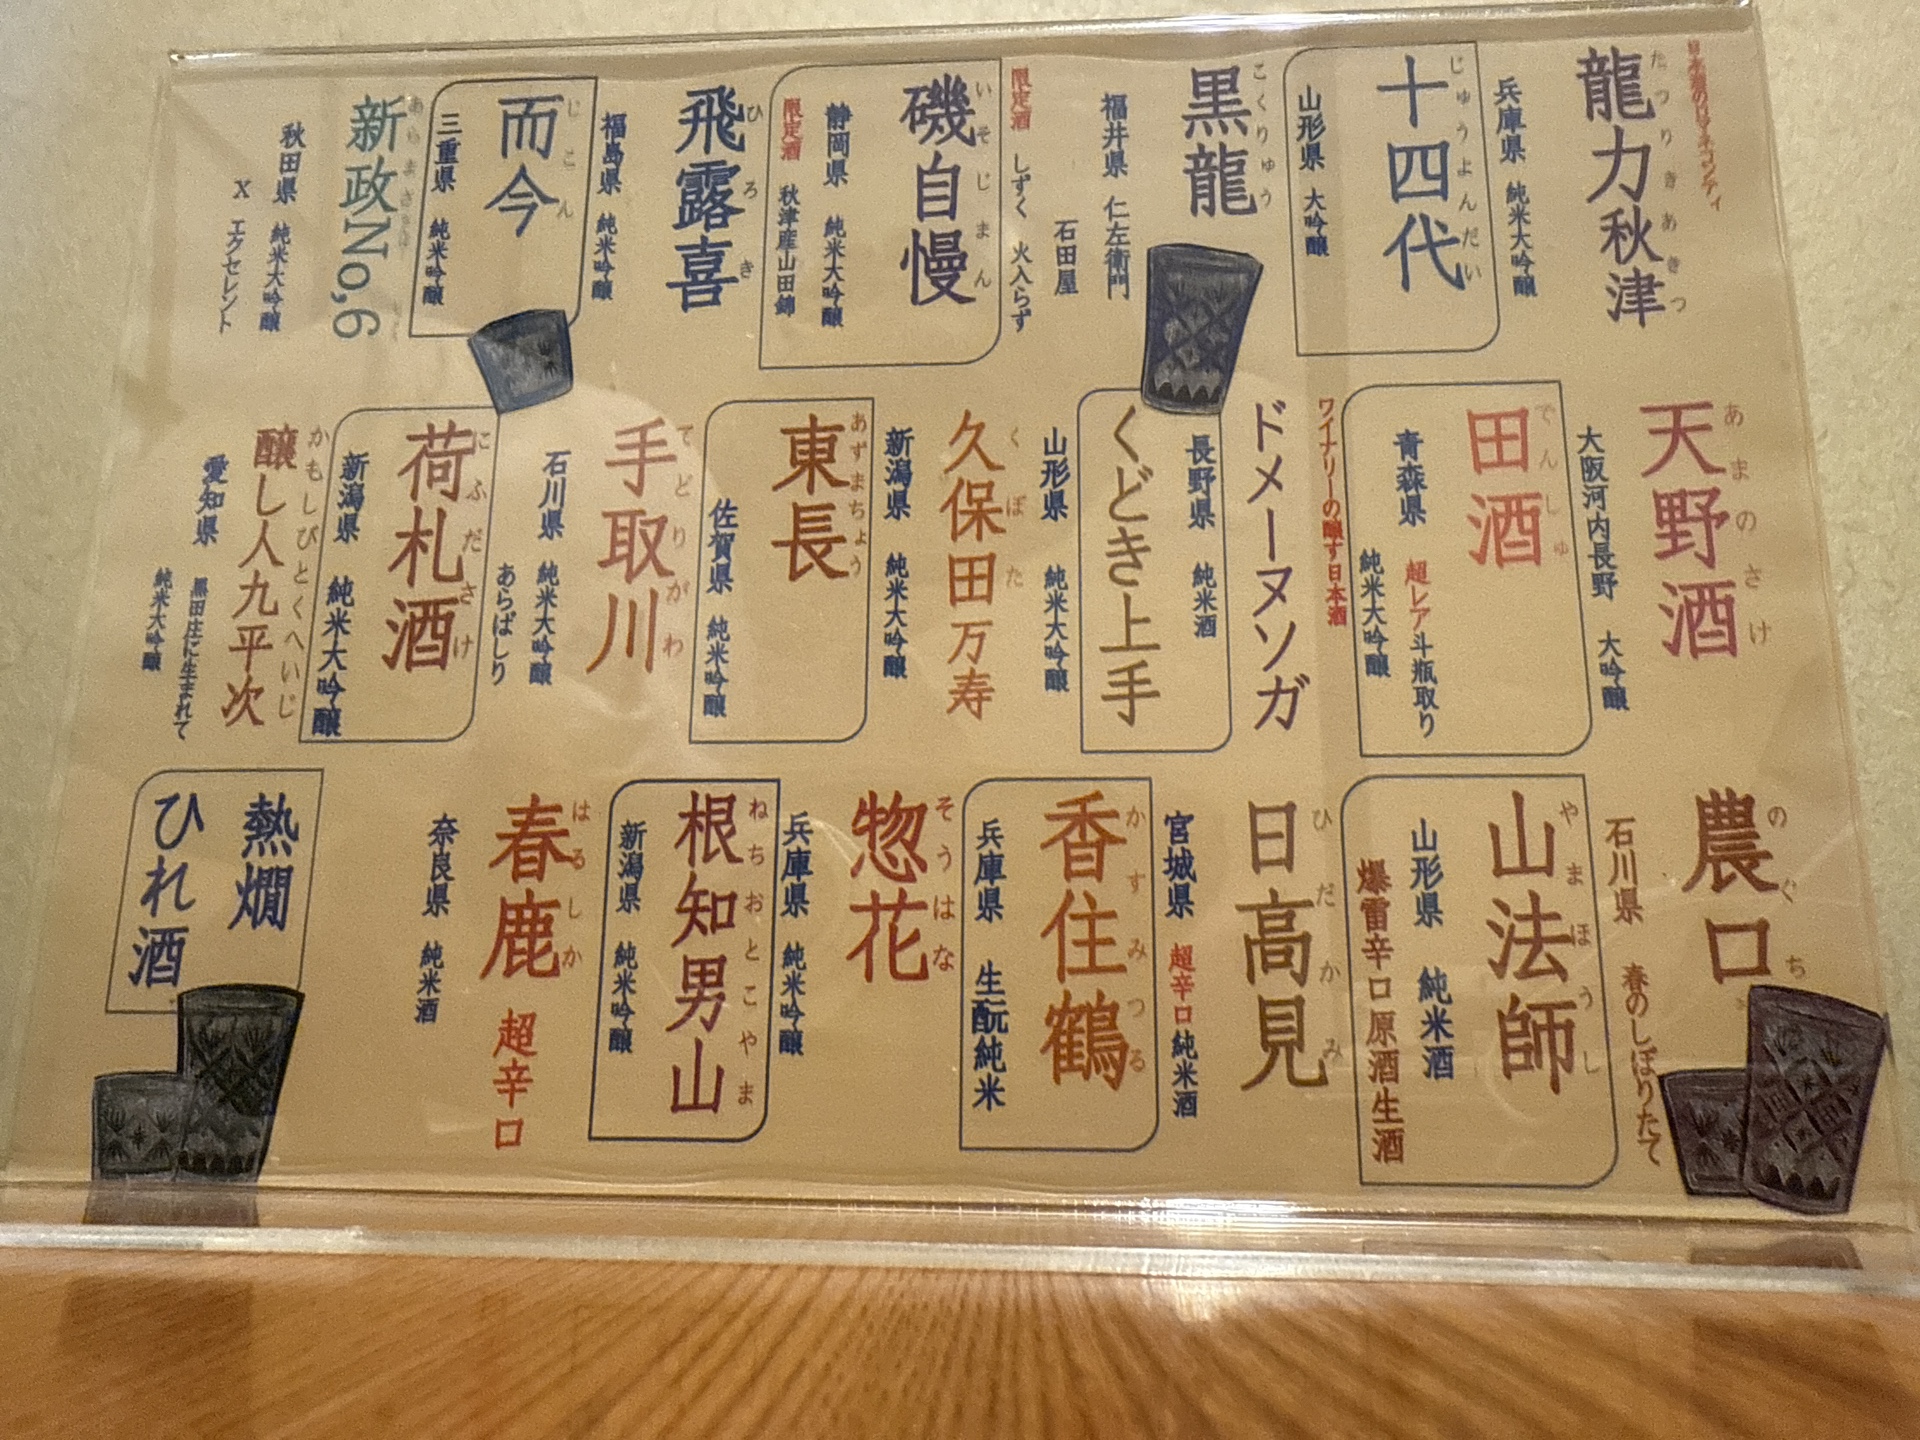 日本酒のロマネコンティ
龍力秋津
たつりきあきつ
兵庫県 純米大吟醸
十四代
じゅうよんだい
山形県 大吟醸
黒龍
こくりゅう
福井県 仁左衛門
石田屋
限定酒 しずく 火入らず
磯自慢
いそじまん
静岡県 純米大吟醸
限定酒 秋津産山田錦
飛露喜
ひろき
福島県 純米吟醸
而今
じこん
三重県 純米吟醸
新政No,6
あらまさ
秋田県 純米大吟醸
X エクセレント
天野酒
あまのさけ
大阪河内長野 大吟醸
田酒
でんしゅ
青森県 超レア斗瓶取り
純米大吟醸
ワイナリーの醸す日本酒
ドメーヌソガ
長野県 純米酒
くどき上手
山形県 純米大吟醸
久保田万寿
くぼた
新潟県 純米大吟醸
東長
あずまちょう
佐賀県 純米吟醸
手取川
てどりがわ
石川県 純米大吟醸
あらばしり
荷札酒
にふだざけ
新潟県 純米大吟醸
醸し人九平次
かもしびとくへいじ
愛知県 黒田庄に生まれて
純米大吟醸
農口
のぐち
石川県 春のしぼりたて
山法師
やまほうし
山形県 純米酒
爆雷辛口原酒生酒
日高見
ひだかみ
宮城県 超辛口純米酒
香住鶴
かすみつる
兵庫県 生酛純米
惣花
そうはな
兵庫県 純米吟醸
根知男山
ねちおとこやま
新潟県 純米吟醸
春鹿 超辛口
はるしか
奈良県 純米酒
熱燗
ひれ酒